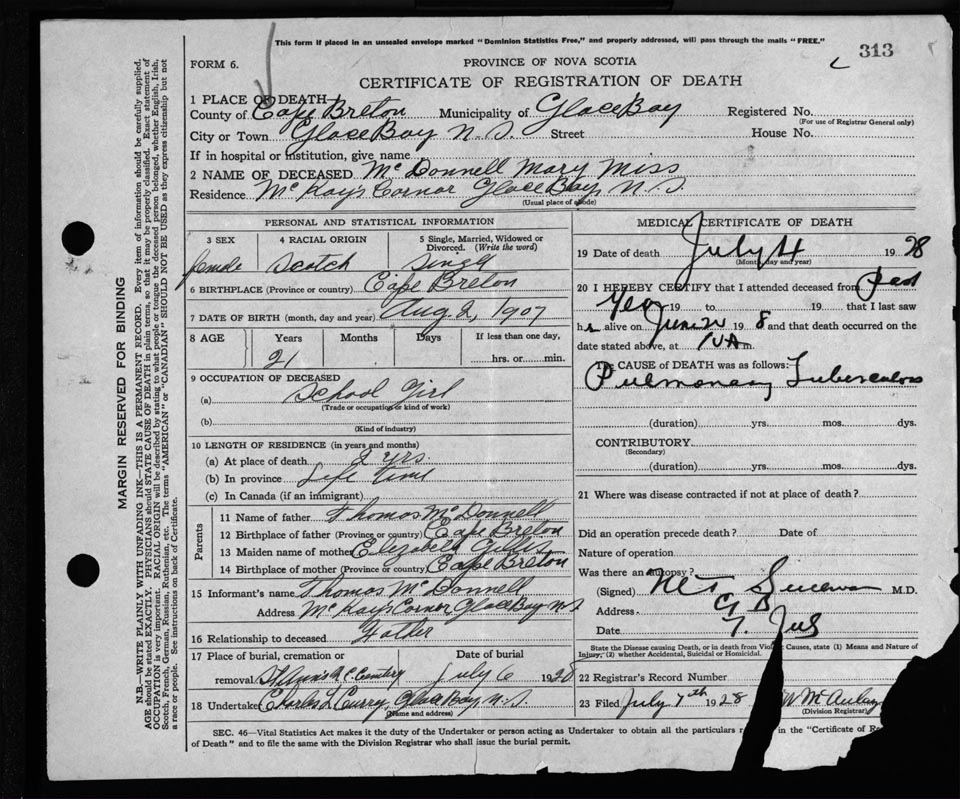 This form if placed in an unsealed envelope marked "Dominion Statistics Free," and properly addressed, will pass through the mails "FREE."
313
FORM 6.
PROVINCE OF NOVA SCOTIA
CERTIFICATE OF REGISTRATION OF DEATH
1 PLACE OF DEATH
County of Cape Breton Municipality of Glace Bay Registered No.
(For use of Registrar General only)
City or Town Glace Bay N.S. Street House No.
If in hospital or institution, give name
2 NAME OF DECEASED McDonnell Mary Miss
Residence McKay's Cornor Glace Bay, N.S.
(Usual place of abode)
PERSONAL AND STATISTICAL INFORMATION
3 SEX 4 RACIAL ORIGIN 5 Single, Married, Widowed or Divorced. (Write the word)
female Scotch Single
6 BIRTHPLACE (Province or country) Cape Breton
7 DATE OF BIRTH (month, day and year) Aug 2, 1907
8 AGE Years Months Days If less than one day,
21 hrs. or min.
9 OCCUPATION OF DECEASED
(a) School Girl
(Trade or occupation or kind of work)
(b)
(Kind of industry)
10 LENGTH OF RESIDENCE (in years and months)
(a) At place of death 2 yrs.
(b) In province Life time
(c) In Canada (if an immigrant)
Parents
11 Name of father Thomas McDonnell
12 Birthplace of father (Province or country) Cape Breton
13 Maiden name of mother Elizabeth Gillis
14 Birthplace of mother (Province or country) Cape Breton
15 Informant's name Thomas McDonnell
Address McKay's Corner, Glace Bay N.S
16 Relationship to deceased Father
17 Place of burial, cremation or Date of burial
removal R.C. Cemetery July 6 1928
18 Undertaker Charles L Curry, Glace Bay N.S.
(Name and address)
MEDICAL CERTIFICATE OF DEATH
19 Date of death July 4 1928
(Month, day and year)
20 I HEREBY CERTIFY that I attended deceased from Past
Year 19 to 19 that I last saw
h alive on June 19 8 and that death occurred on the
date stated above, at m.
The CAUSE OF DEATH was as follows:
Pulmonary Tuberculosis
(duration) yrs. mos. dys.
CONTRIBUTORY
(Secondary)
(duration) yrs. mos. dys.
21 Where was disease contracted if not at place of death?
Did an operation precede death? Date of
Nature of operation
Was there an autopsy?
(Signed) M.D.
Address G B
Date 7. July
State the Disease causing Death, or in death from Causes, state (1) Means and Nature of
Injury, (2) whether Accidental, Suicidal or Homicidal.
22 Registrar's Record Number
23 Filed July 7th 1928
(Division Registrar)
SEC. 46—Vital Statistics Act makes it the duty of the Undertaker or person acting as Undertaker to obtain all the particulars in the "Certificate of
of Death" and to file the same with the Division Registrar who shall issue the burial permit.
MARGIN RESERVED FOR BINDING
N.B.—WRITE PLAINLY WITH UNFADING INK—THIS IS A PERMANENT RECORD. Every item of information should be carefully supplied.
AGE should be stated EXACTLY. PHYSICIANS should STATE CAUSE OF DEATH in plain terms, so that it may be properly classified. Exact statement of
OCCUPATION is very important. RACIAL ORIGIN will be described by stating to what people or tongue the deceased person belonged, whether English, Irish,
Scotch, French, German, Russian, Ruthenian, etc. The terms "AMERICAN" or "CANADIAN" SHOULD NOT BE USED as they express citizenship but not
a race or people. See instructions on back of Certificate.